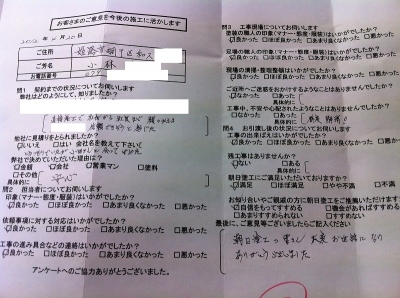 お客さまのご意見を今後の施工に活かします
ご住所
ご芳名 小林
お電話番号
問1 契約までの状況についてお伺いします
弊社はどのようにして、知りましたか?
他社に見積りをとられましたか?
いいえ はい 会社名を教えて下さい
弊社で決定いただいた理由は?
金額 会社 営業マン 塗料
その他
具体的に 安心
問2 担当者についてお伺いします
印象(マナー・態度・服装)はいかがでしたか?
良かった ほぼ良かった あまり良くなかった 悪かった
依頼事項に対する対応はいかがでしたか?
良かった ほぼ良かった あまり良くなかった 悪かった
工事の進み具合などの連絡はいかがでしたか?
良かった ほぼ良かった あまり良くなかった 悪かった
アンケートへのご協力ありがとうございました。
問3 工事現場についてお伺いします
塗装の職人の印象(マナー・態度・服装)はいかがでしたか?
良かった ほぼ良かった あまり良くなかった 悪かった
足場の職人の印象(マナー・態度・服装)はいかがでしたか?
良かった ほぼ良かった あまり良くなかった 悪かった
現場の清掃・整理整頓はいかがでしたか?
良かった ほぼ良かった あまり良くなかった 悪かった
ご近所へご迷惑をおかけするようなことはありませんでしたか?
なかった あった
具体的に
工事中、不安や心配されたようなことはありませんでしたか?
なかった あった
具体的に
問4 お引渡し後の状況についてお伺いします
工事の出来ばえはいかがでしたか?
良かった ほぼ良かった あまり良くなかった 悪かった
残工事はありませんか?
ない ある
具体的に
朝日塗工にご満足いただいておりますか?
満足 ほぼ満足 やや不満 不満
お知り合いやご親戚の方に朝日塗工をご推薦いただけますか?
自信をもってすすめる 機会があればすすめる
あまりすすめられない すすめない
最後に、ご意見等ございましたらご記入ください
朝日塗工の皆さん 大変お世話になり
ありがとうございました